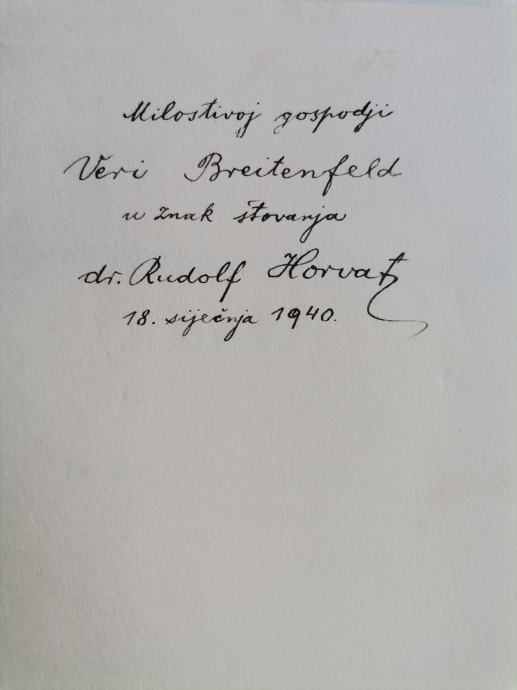 Milostivoj gospodji
Veri Breitenfeld
u znak štovanja
dr. Rudolf Horvat
18. siječnja 1940.